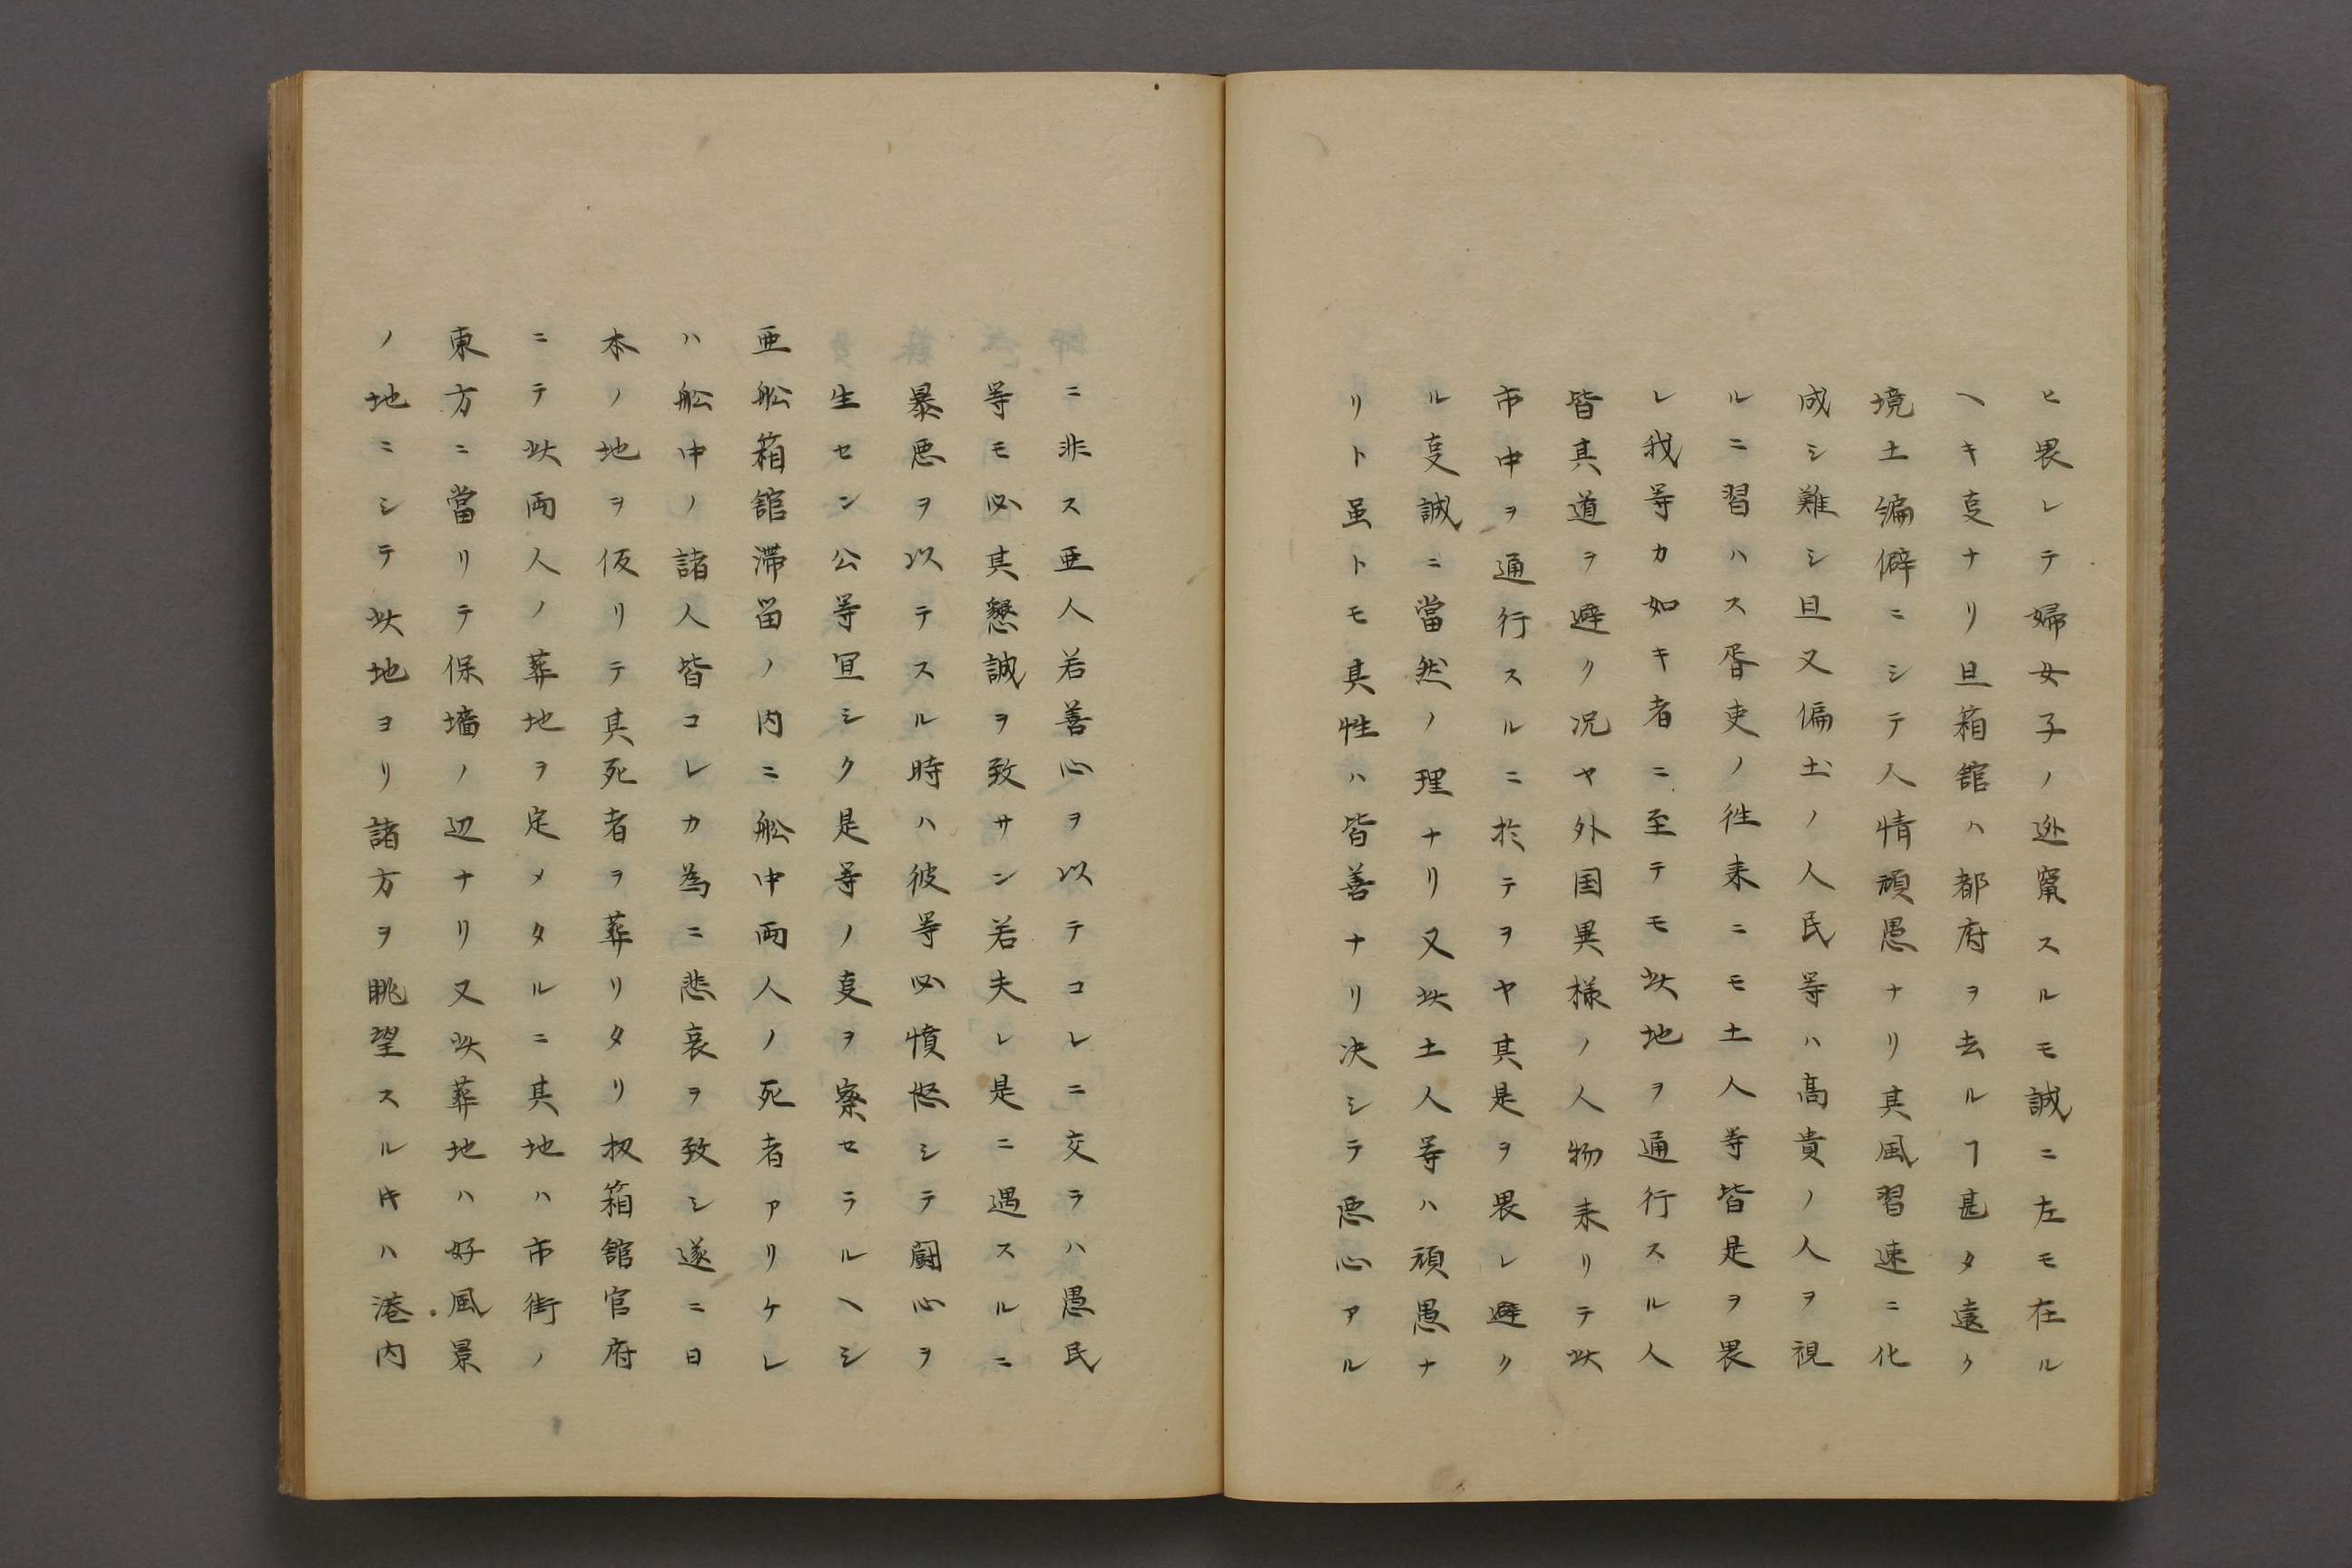 ヒ畏レテ婦女子ノ迯竄スルモ誠ニ左モ在ル
ヘキ叓ナリ且箱舘ハ都府ヲ去ルヿ甚タ遠ク
境土編僻ニシテ人情頑愚ナリ其風習速ニ化
成シ難シ且又偏土ノ人民等ハ髙貴ノ人ヲ視
ルニ習ハス胥吏ノ徃来ニモ土人等皆是ヲ畏
レ我等カ如キ者ニ至テモ此地ヲ通行スル人
皆其道ヲ避ク况ヤ外国異様ノ人物来リテ此
市中ヲ通行スルニ於テヲヤ其是ヲ畏レ避ク
ル叓誠ニ當然ノ理ナリ又此土人等ハ頑愚ナ
リト虽トモ其性ハ皆善ナリ决シテ悪心アル
ニ非ス亜人若善心ヲ以テコレニ交ラハ愚民
等モ必其懇誠ヲ致サン若夫レ是ニ遇スルニ
暴悪ヲ以テスル時ハ彼等必憤怒シテ闘心ヲ
生セン公等冝シク是等ノ叓ヲ察セラルヘシ
亜舩箱舘滞畄ノ内ニ舩中両人ノ死者アリケレ
ハ舩中ノ諸人皆コレカ為ニ悲哀ヲ致シ遂ニ日
本ノ地ヲ仮リテ其死者ヲ葬リタリ扨箱舘官府
ニテ此両人ノ葬地ヲ定メタルニ其地ハ市街ノ
東方ニ當リテ保墻ノ辺ナリ又此葬地ハ好風景
ノ地ニシテ此地ヨリ諸方ヲ眺望スルキハ港内